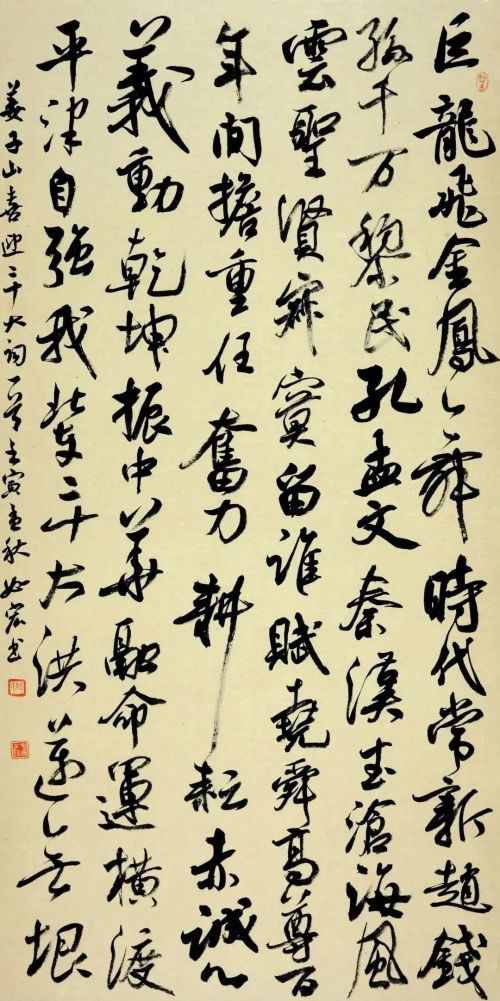 巨龍飛金鳳舞時代常新趙錢
孫千万黎民孔孟文秦漢武滄海風
雲聖賢寂寞留誰賦堯舜高尊百
年間擔重任奮力耕耘赤誠心
義動乾坤振中華融命運橫渡
平津自強我輩二十大洪無垠
姜子山喜迎二十大詞一首壬寅孟秋如宏書